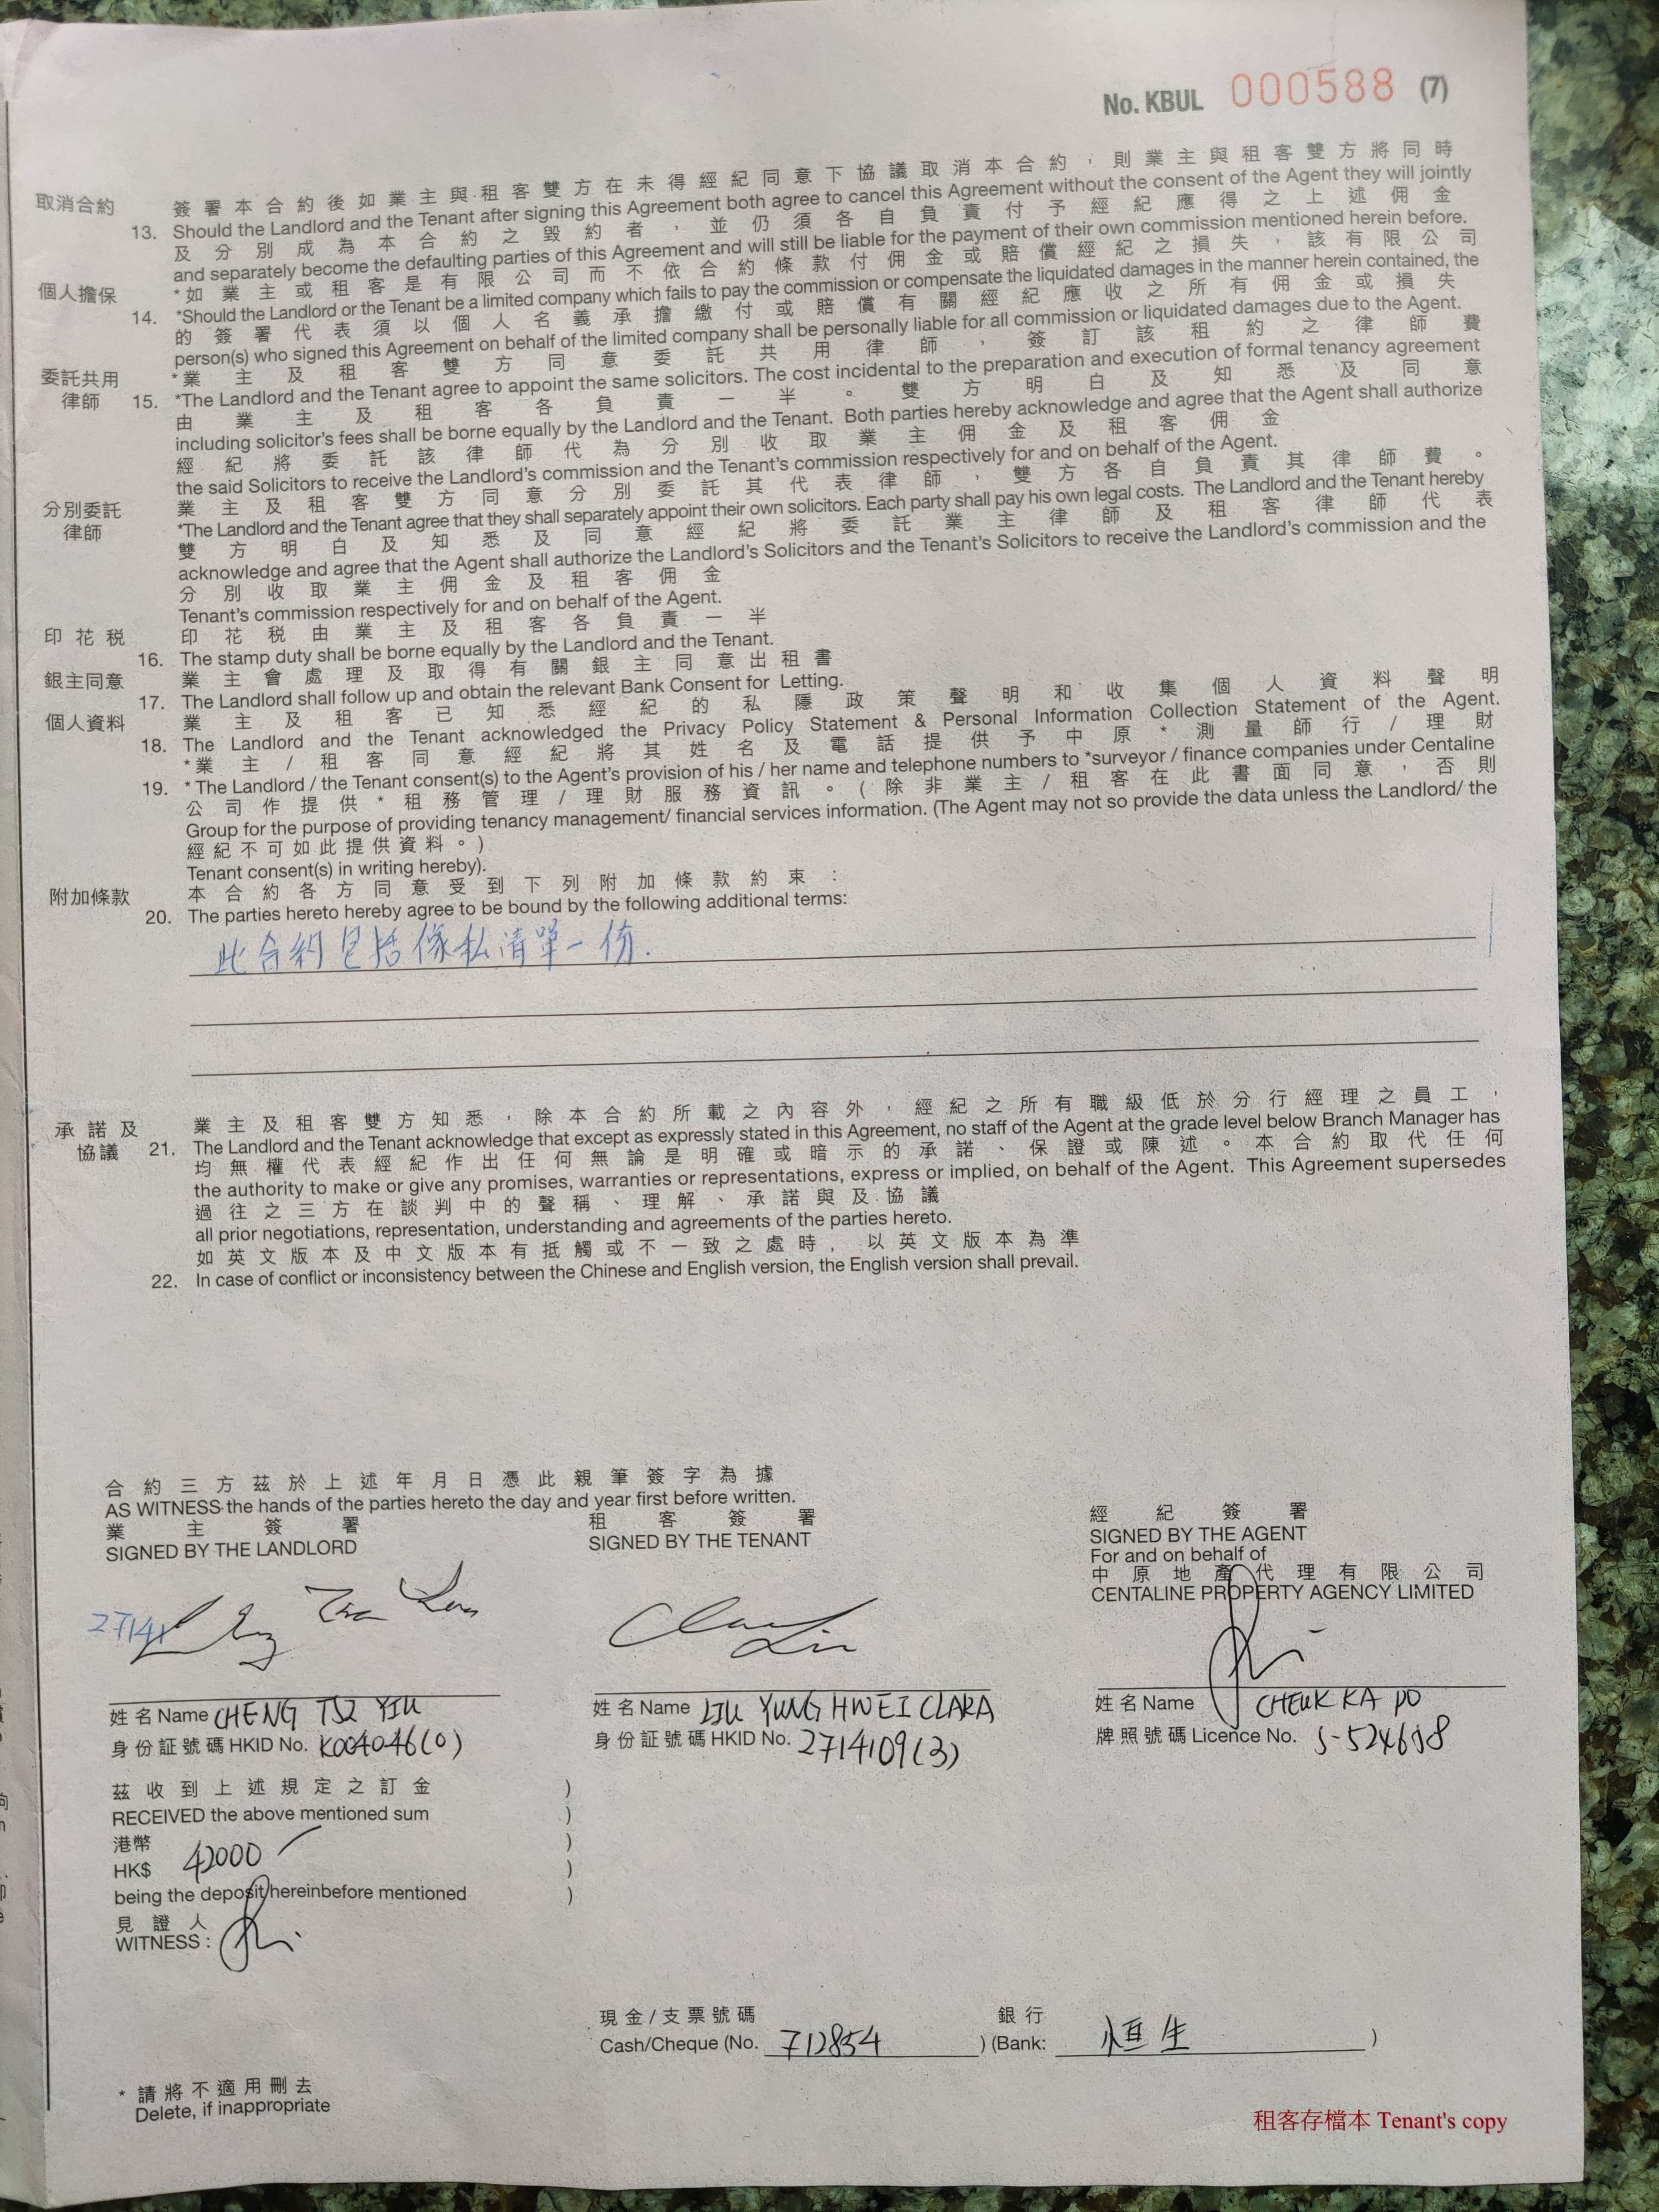 No. KBUL 000588 (7)
取消合約 簽署本合約後如業主與租客雙方在未得經紀同意下協議取消本合約，則業主與租客雙方將同時
13. Should the Landlord and the Tenant after signing this Agreement both agree to cancel this Agreement without the consent of the Agent they will jointly
及分別成為本合約之毀約者，並仍須各自負責付予經紀應得之上述佣金
and separately become the defaulting parties of this Agreement and will still be liable for the payment of their own commission mentioned herein before.
個人擔保 *如業主或租客是有限公司而不依合約條款付佣金或賠償經紀之損失，該有限公司
14. *Should the Landlord or the Tenant be a limited company which fails to pay the commission or compensate the liquidated damages in the manner herein contained, the
的簽署代表須以個人名義承擔繳付或賠償有關經紀應收之所有佣金或損失
person(s) who signed this Agreement on behalf of the limited company shall be personally liable for all commission or liquidated damages due to the Agent.
委託共用律師 *業主及租客雙方同意委託共用律師，簽訂該租約之律師費
15. *The Landlord and the Tenant agree to appoint the same solicitors. The cost incidental to the preparation and execution of formal tenancy agreement
由業主及租客各負責一半。雙方明白及知悉及同意
including solicitor's fees shall be borne equally by the Landlord and the Tenant. Both parties hereby acknowledge and agree that the Agent shall authorize
經紀將委託該律師代為分別收取業主佣金及租客佣金
the said Solicitors to receive the Landlord's commission and the Tenant's commission respectively for and on behalf of the Agent.
分別委託律師 業主及租客雙方同意分別委託其代表律師，雙方各自負責其律師費。
*The Landlord and the Tenant agree that they shall separately appoint their own solicitors. Each party shall pay his own legal costs. The Landlord and the Tenant hereby
雙方明白及知悉及同意經紀將委託業主律師及租客律師代表
acknowledge and agree that the Agent shall authorize the Landlord's Solicitors and the Tenant's Solicitors to receive the Landlord's commission and the
分別收取業主佣金及租客佣金
Tenant's commission respectively for and on behalf of the Agent.
印花税 印花税由業主及租客各負責一半
16. The stamp duty shall be borne equally by the Landlord and the Tenant.
銀主同意 業主會處理及取得有關銀主同意出租書
17. The Landlord shall follow up and obtain the relevant Bank Consent for Letting.
個人資料 業主及租客已知悉經紀的私隱政策聲明和收集個人資料聲明
18. The Landlord and the Tenant acknowledged the Privacy Policy Statement & Personal Information Collection Statement of the Agent.
*業主/租客同意經紀將其姓名及電話提供予中原*測量師行/理財
19. * The Landlord / the Tenant consent(s) to the Agent's provision of his / her name and telephone numbers to *surveyor / finance companies under Centaline
公司作提供*租務管理/理財服務資訊。(除非業主/租客在此書面同意，否則
Group for the purpose of providing tenancy management/ financial services information. (The Agent may not so provide the data unless the Landlord/ the
經紀不可如此提供資料。)
Tenant consent(s) in writing hereby).
附加條款 本合約各方同意受到下列附加條款約束：
20. The parties hereto hereby agree to be bound by the following additional terms:
此合約包括傢私清單一份.
承諾及協議 業主及租客雙方知悉，除本合約所載之內容外，經紀之所有職級低於分行經理之員工，
21. The Landlord and the Tenant acknowledge that except as expressly stated in this Agreement, no staff of the Agent at the grade level below Branch Manager has
均無權代表經紀作出任何無論是明確或暗示的承諾、保證或陳述。本合約取代任何
the authority to make or give any promises, warranties or representations, express or implied, on behalf of the Agent. This Agreement supersedes
過往之三方在談判中的聲稱、理解、承諾與及協議
all prior negotiations, representation, understanding and agreements of the parties hereto.
如英文版本及中文版本有抵觸或不一致之處時，以英文版本為準
22. In case of conflict or inconsistency between the Chinese and English version, the English version shall prevail.
合約三方茲於上述年月日憑此親筆簽字為據
AS WITNESS the hands of the parties hereto the day and year first before written.
業主簽署 租客簽署 經紀簽署
SIGNED BY THE LANDLORD SIGNED BY THE TENANT SIGNED BY THE AGENT
For and on behalf of
中原地產代理有限公司
CENTALINE PROPERTY AGENCY LIMITED
27141
姓名 Name CHENG TSZ YIU 姓名 Name LIU YUNG HWEI CLARA 姓名 Name CHEUK KA PO
身份証號碼 HKID No. K004046(0) 身份証號碼 HKID No. 2714109(3) 牌照號碼 Licence No.
茲收到上述規定之訂金 )
RECEIVED the above mentioned sum )
港幣 )
HK$ 42000 )
being the deposit hereinbefore mentioned )
見證人
WITNESS :
現金/支票號碼 銀行
Cash/Cheque (No. 712854 ) (Bank: 恒生 )
* 請將不適用刪去
Delete, if inappropriate
租客存檔本 Tenant's copy